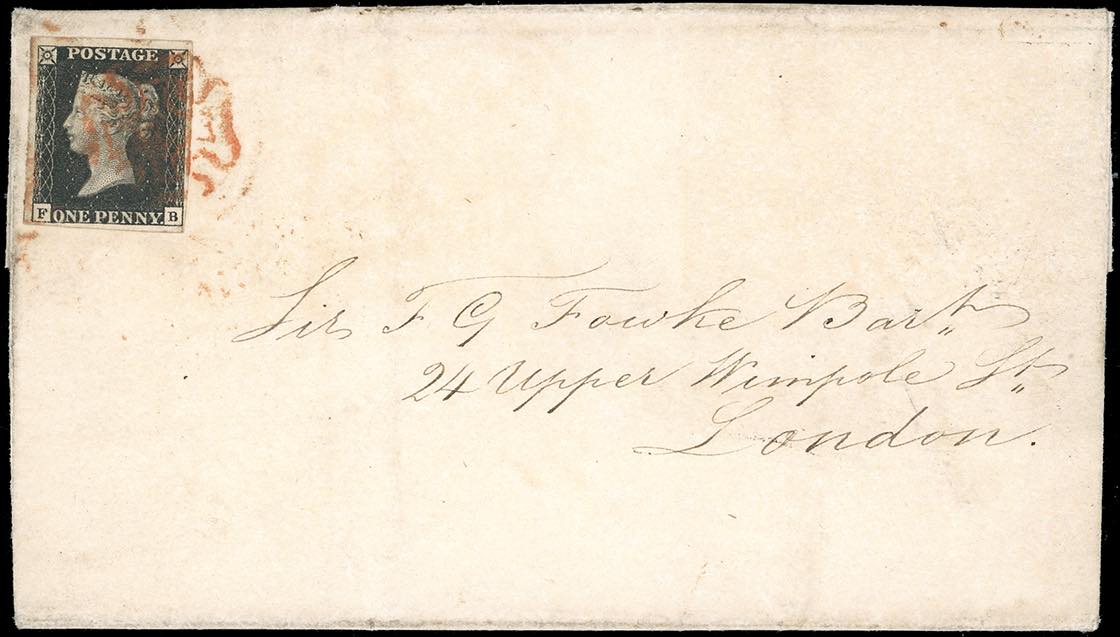 POSTAGE
F ONE PENNY. B
Sir F G Fowke Bart
24 Upper Wimpole St
London.